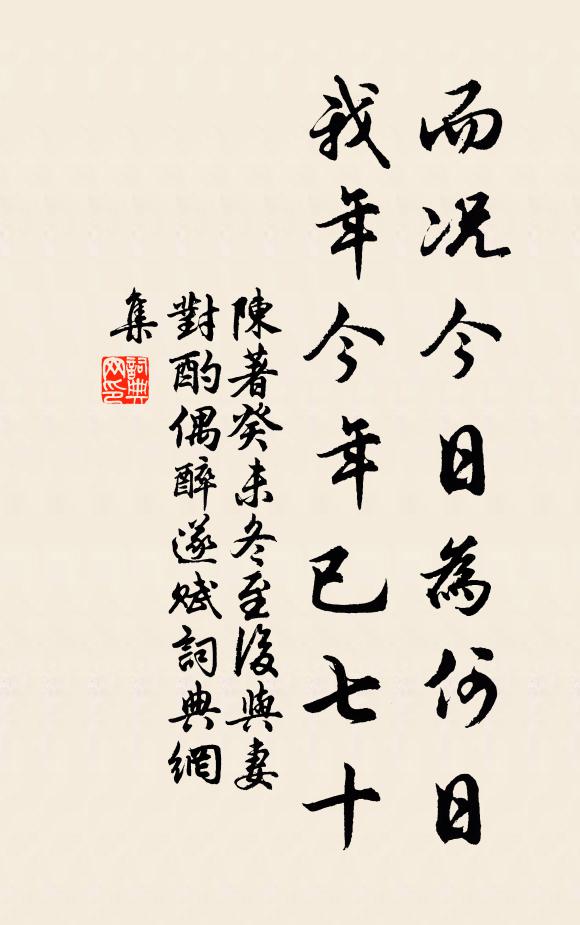 而况今日為何日
我年今年已七十
陳著癸未冬至後與妻
對酌偶醉遂賦詞典網
集
詞典網印